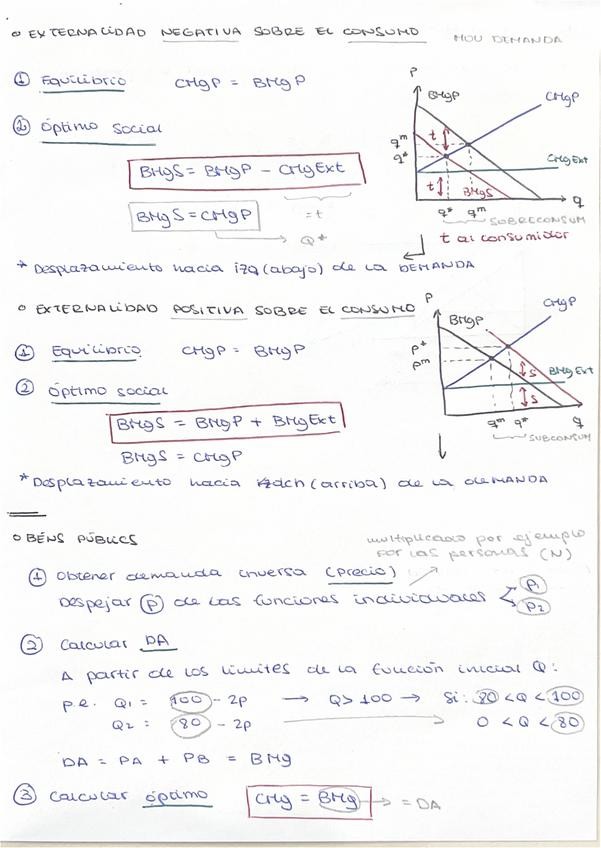 o EXTERNALIDAD NEGATIVA SOBRE EL CONSUMO MOU DEMANDA
① Equilibrio CMgP = BMgP
② Óptimo Social
BMgS = BMgP - CMgExt
BMgS = CMgP = t
Q*
P
BMgP
CMgP
qᵐ
q*
t
CMgExt
t
BMgS
q* qᵐ q
SOBRECONSUM
t al consumidor
* Desplazamiento hacia izq (abajo) de la DEMANDA
o EXTERNALIDAD POSITIVA SOBRE EL CONSUMO
① Equilibrio CMgP = BMgP
② Óptimo social
BMgS = BMgP + BMgExt
BMgS = CMgP
P
BMgP
CMgP
P*
Pᵐ
s
BMgExt
s
qᵐ q* q
SUBCONSUM
* Desplazamiento hacia dch (arriba) de la DEMANDA
o BÉNS PÚBLICS
multiplicado por ejemplo
por las personas (N)
① Obtener demanda inversa (precio)
Despejar (P) de las funciones individuales P₁
P₂
② Calcular DA
A partir de los límites de la función inicial Q:
p.e. Q₁ = 100 - 2p → Q > 100 → Si: 80 < Q < 100
Q₂ = 80 - 2p → 0 < Q < 80
DA = PA + PB = BMg
③ Calcular óptimo CMg = BMg → = DA